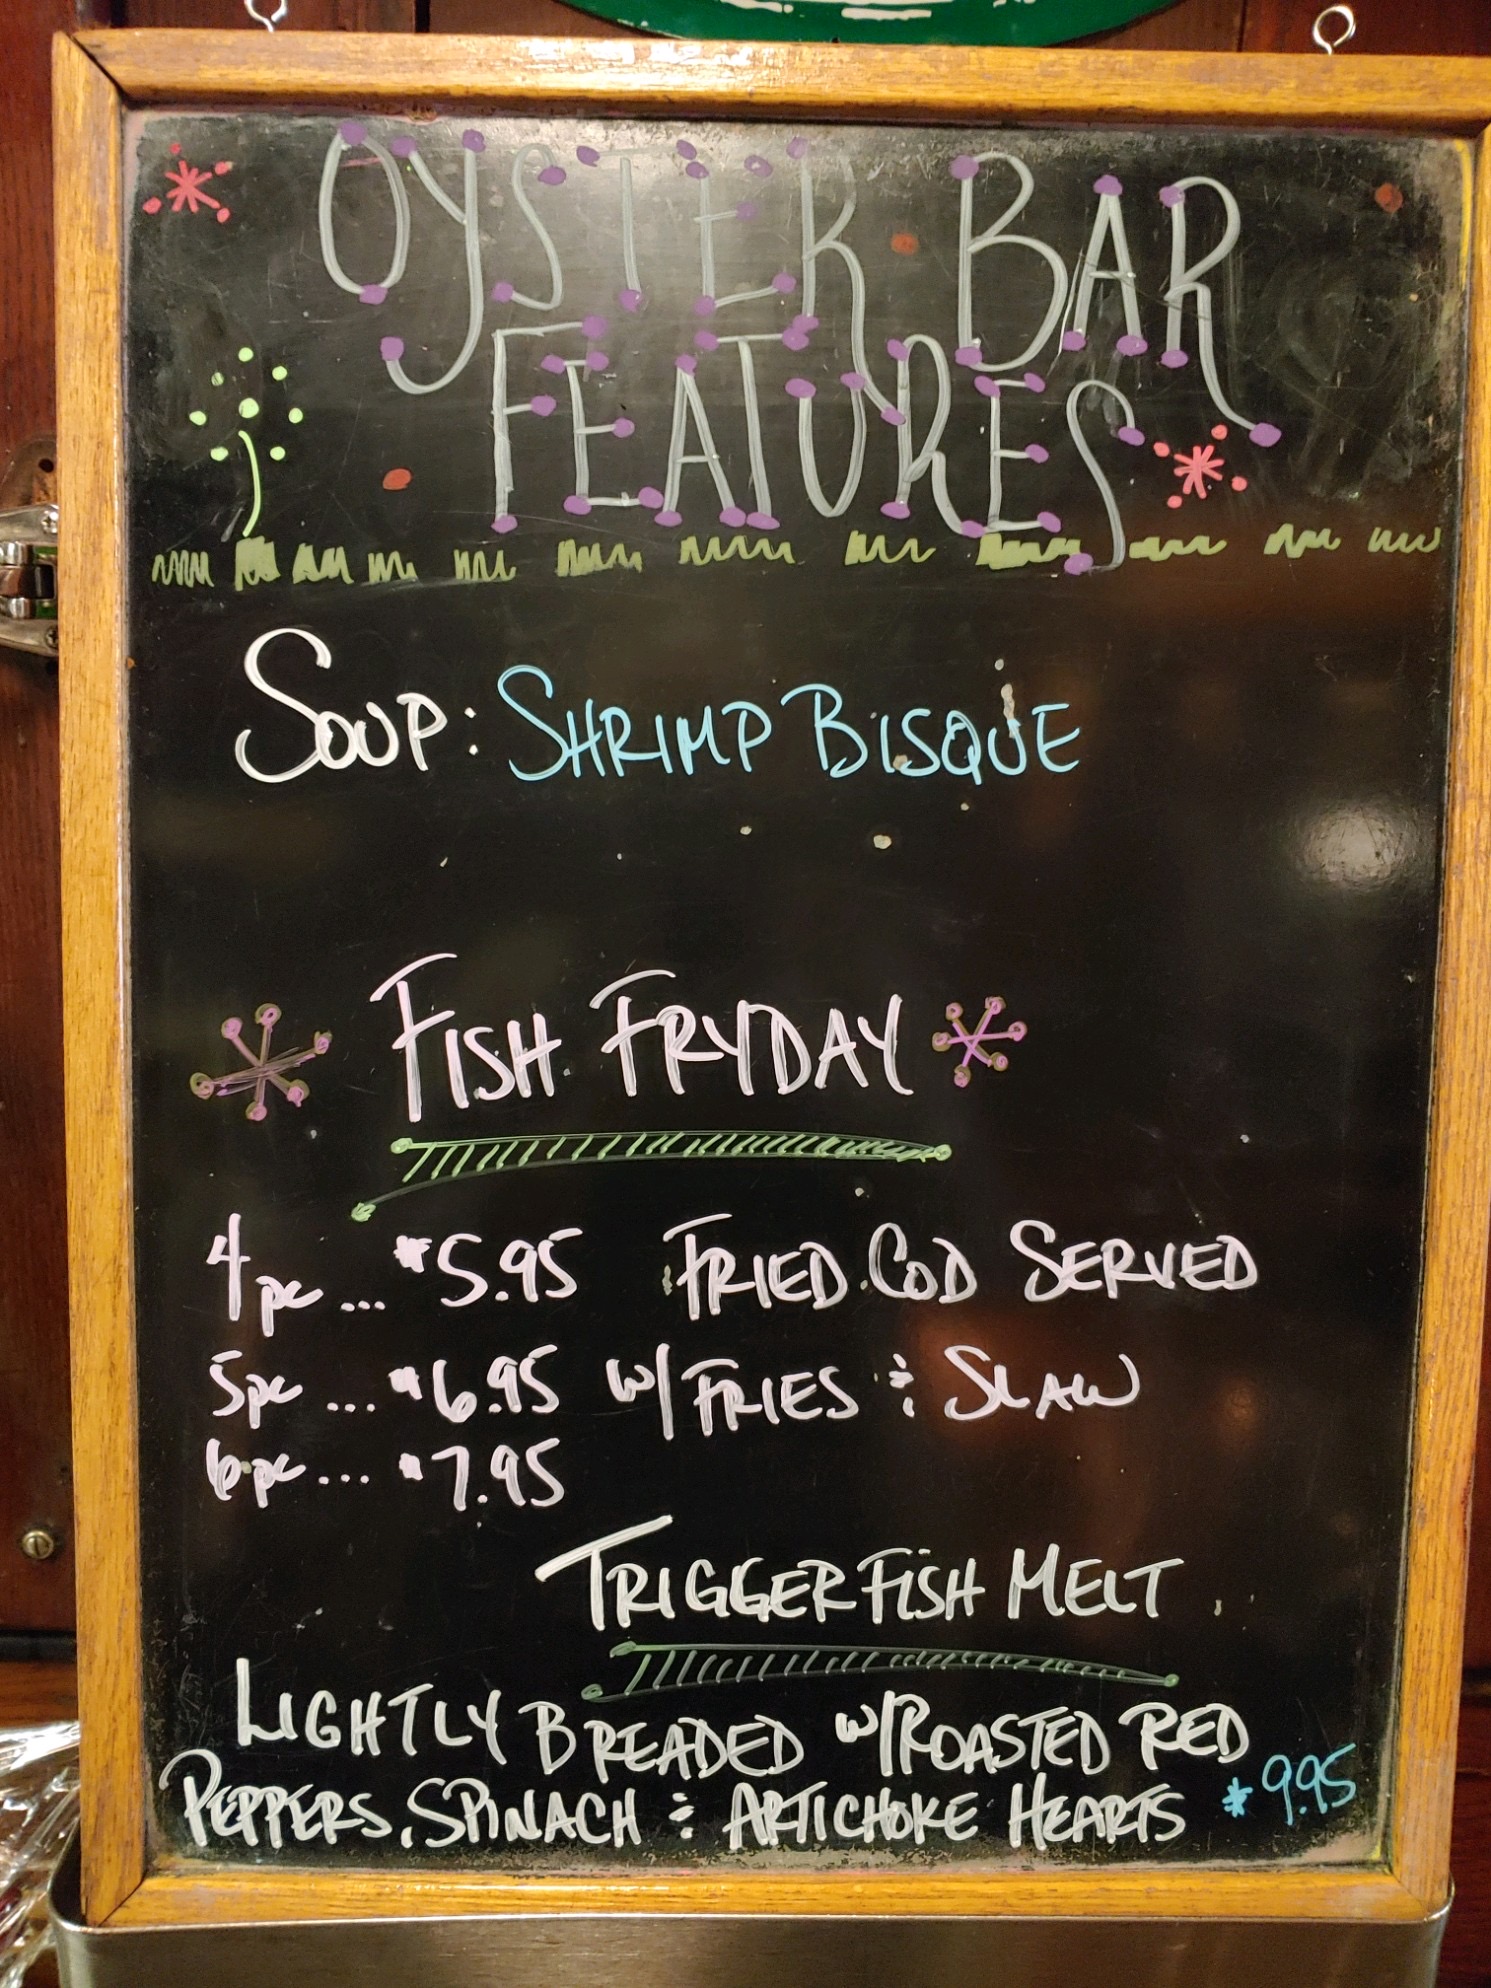 OYSTER BAR
FEATURES
SOUP: SHRIMP BISQUE
FISH FRYDAY
4pc ... $5.95 FRIED COD SERVED
5pc ... $6.95 W/ FRIES & SLAW
6pc ... $7.95
TRIGGERFISH MELT
LIGHTLY BREADED W/ ROASTED RED
PEPPERS, SPINACH & ARTICHOKE HEARTS $9.95